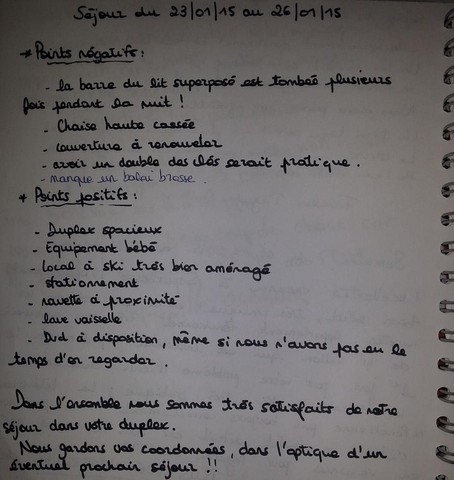 Séjour du 23/01/15 au 26/01/15
* Points négatifs :
- la barre du lit superposé est tombée plusieurs
fois pendant la nuit !
- Chaise haute cassée
- couverture à renouveler
- avoir un double des clés serait pratique.
- manque un balai brosse.
* Points positifs :
- Duplex spacieux
- Equipement bébé
- local à ski très bien aménagé
- stationnement
- navette à proximité
- lave vaisselle
- Dvd à disposition, même si nous n'avons pas eu le
temps d'en regarder.
Dans l'ensemble nous sommes très satisfaits de notre
séjour dans votre duplex.
Nous gardons vos coordonnées, dans l'optique d'un
éventuel prochain séjour !!